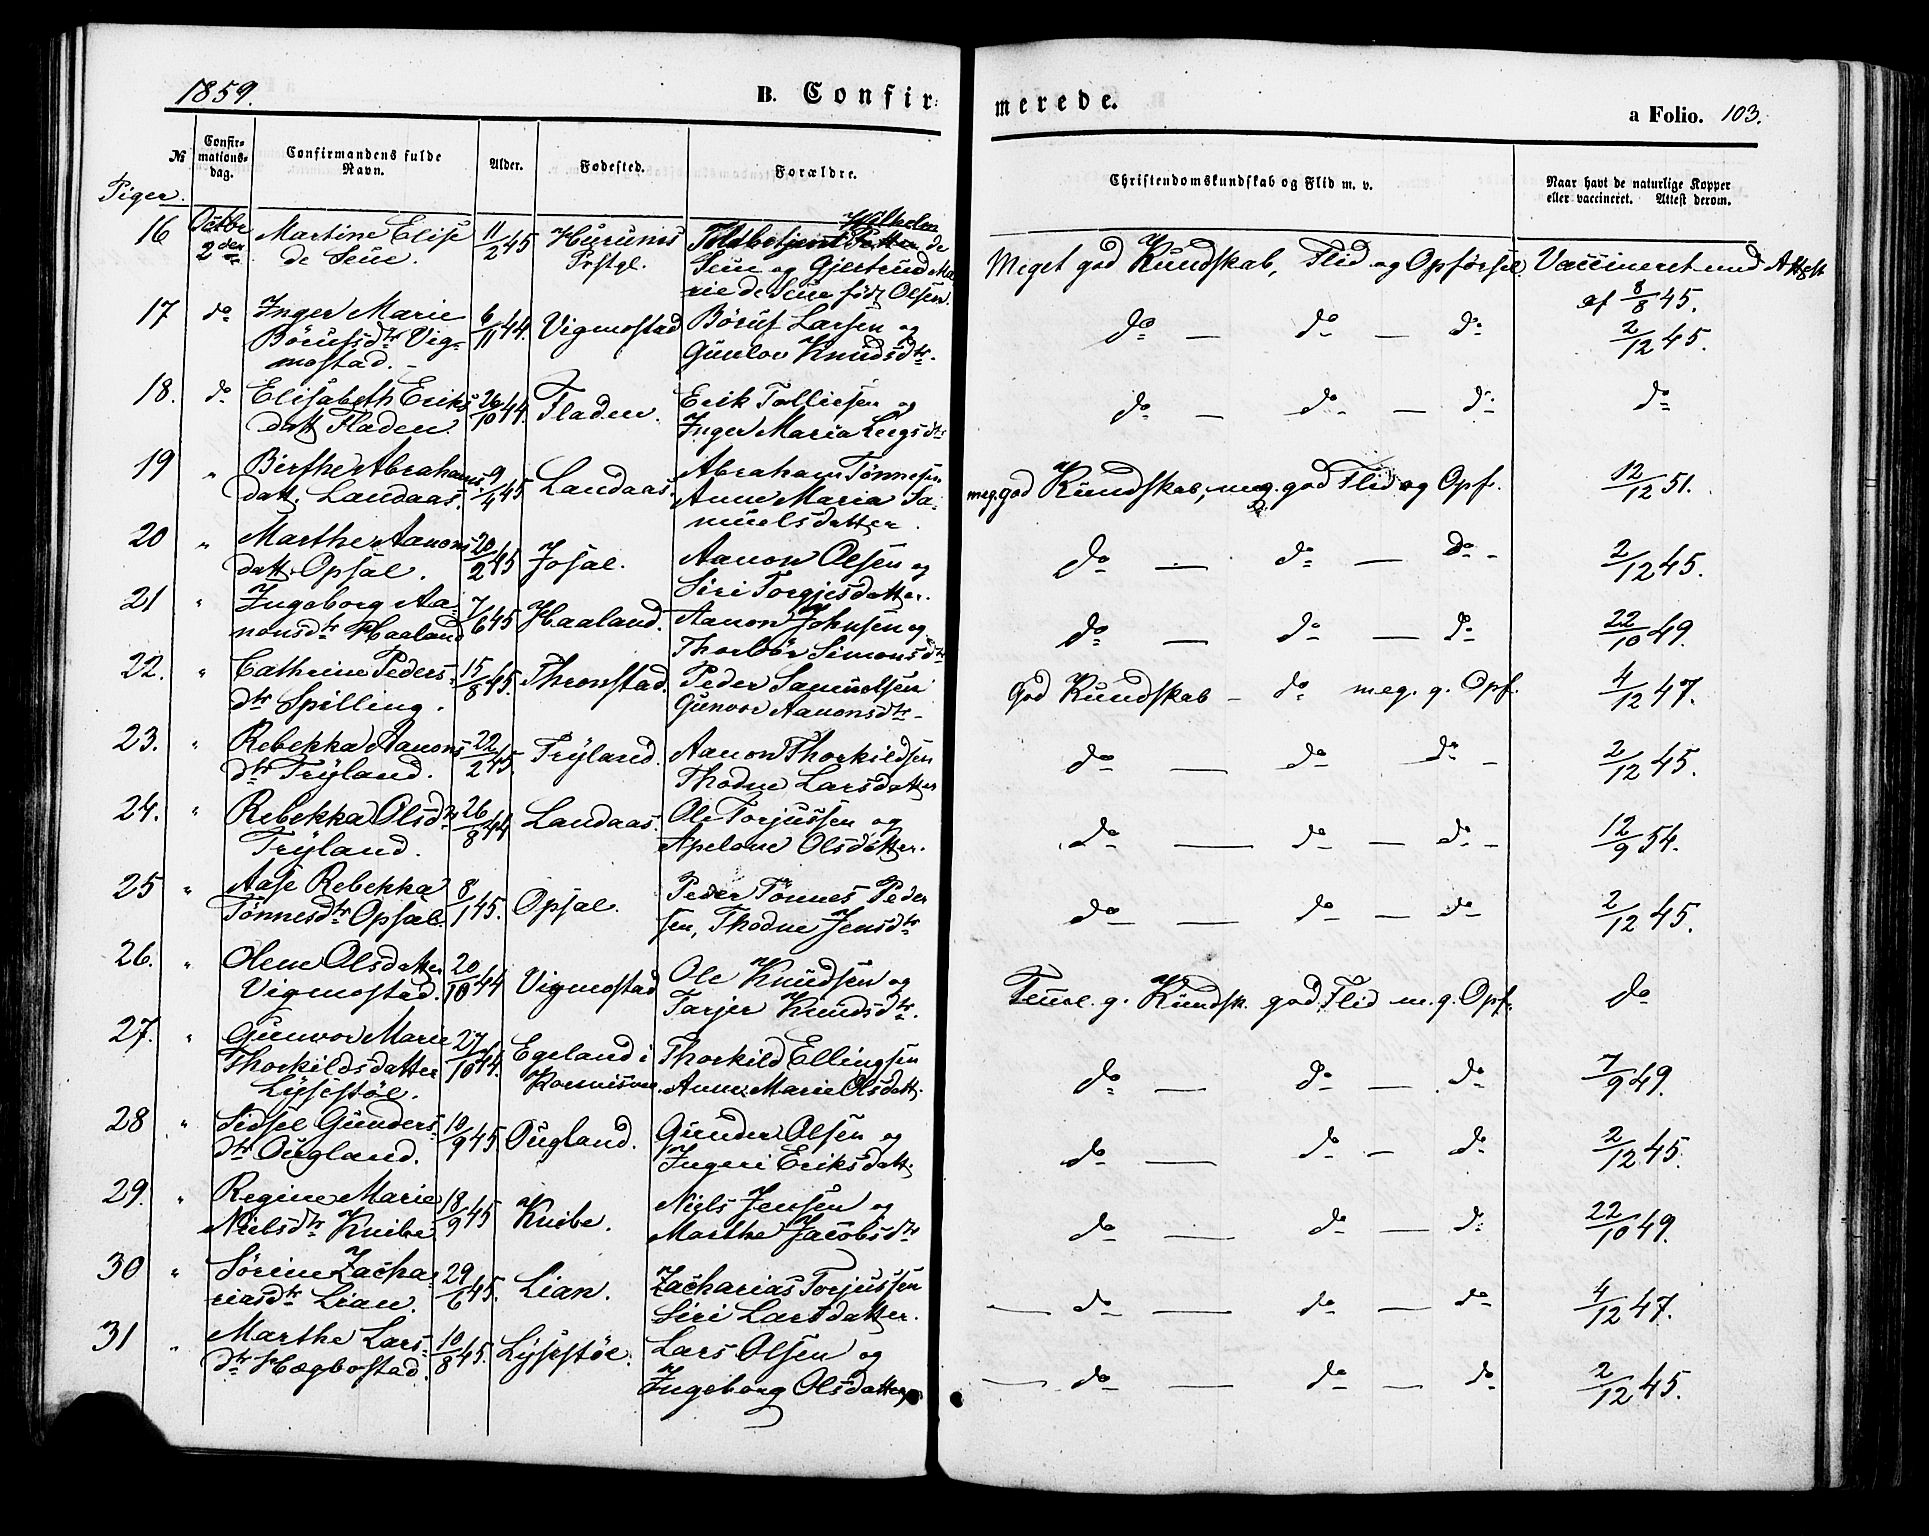 1859.
B. Confirmerede.
a Folio. 103.
№ Confirmationsdag. Confirmandens fulde Navn. Alder. Fødested. Forældre. Christendomskundskab og Flid m. v. Naar havt de naturlige Kopper eller vaccineret. Attest derom.
Piger.
16 Octbr 2den Martine Elise 11/2 45 Hurums Toldbetjent Wilhelm de
de Seue. Prstgl. Seue og Gjertrud Ma- Meget god Kundskab, Flid og Opførsel Vaccineret med Attest
rie de Seue født Olsen. af 8/8 45.
17 do Inger Marie 6/11 44. Vigmostad Børuf Larsen og do — do — do 2/12 45.
Børufsdtr Vig- Gunlov Knudsdtr.
mostad. -
18. do Elisabeth Eriks 26/10 44. Fladen. Erik Tollicsen og do — do — do do
datt Fladen. Inger Maria Leegsdtr
19 " Birthe Abrahams 9/1 45 Landaas. Abraham Tønnesen meg. god Kundskab, meg. god Flid og Opf. 12/12 51.
datt. Landaas. Anne Maria Sa-
muelsdatter.
20 " Marthe Aanons 20/2 45 Josal. Aanon Olsen og do — do — do - 2/12 45.
datt. Opsal. Siri Torgjesdatter.
21 " Ingeborg Aa- 7/6 45 Haaland. Aanon Johnsen og do — do — do 22/10 49.
nonsdtr Haaland Thorbør Simonsdtr
22. " Cathrine Peders- 15/8 45. Thronstad. Peder Samuelsen God Kundskab - do meg. g. Opf. 4/12 47.
dtr Spilling. Gunvor Aanonsdtr-
23. " Rebekka Aanons 22/2 45. Trÿland. Aanon Thorkildsen do — do do - 2/12 45.
dtr Trÿland. Thodne Larsdatter
24. " Rebekka Olsdtr 26/8 44 Landaas. Ole Torjussen og do — do — do - 12/9 54.
Trÿland. Apelone Olsdatter.
25 " Aase Rebekka 8/1 45. Opsal. Peder Tønnes Peder do — do — do 2/12 45.
Tønnesdtr Opsal. sen, Thodne Jensdtr
26. " Olene Olsdatter 20/10 44 Vigmostad Ole Knudsen og Temml. g. Kundsk. god Flid m. g. Opf. do
Vigmostad. Tarjer Knudsdtr.
27. " Gunvor Marie 27/10 44. Egeland i Thorkild Ellingsen do — do — do 7/9 49.
Thorkildsdatter Anne Marie Olsdatt.
Lÿsestøl.
28 " Sidsel Gunders- 10/9 45 Ougland. Gunder Olsen og do — do — do 2/12 45.
dtr Ougland. Ingeri Eriksdatt.
29. " Regine Marie 18/9 45 Knibe. Niels Jensen og do — do — do 22/10 49.
Nielsdtr Knibe. Marthe Jacobsdtr
30 " Sørine Zacha- 29/6 45. Lian. Zacharias Torjussen — do — do — do 4/12 47.
riasdtr Lian. Siri Larsdatter.
31 " Marthe Lars- 10/8 45. Lÿsestøl. Lars Olsen og — do — do — do 2/12 45.
dtr Hægbostad. Ingeborg Olsdatter